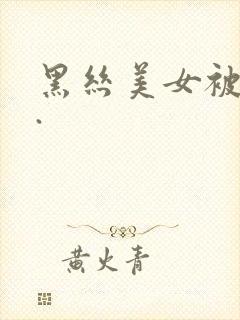 黑丝美女被
.
黄火青